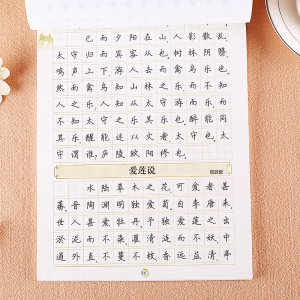 已而夕阳在山，人影散乱，
太守归而宾客从也。树林阴翳，
鸣声上下，游人去而禽鸟乐也。
然而禽鸟知山林之乐，而不知
人之乐；人知从太守游而乐，而不
知太守之乐其乐也。醉能同
其乐，醒能述以文者，太守也。太
守谓谁？庐陵欧阳修也。
爱莲说
周敦颐
水陆草木之花，可爱者甚
蕃。晋陶渊明独爱菊。自李唐来，
世人甚爱牡丹。予独爱莲之出
淤泥而不染，濯清涟而不妖，中
通外直，不蔓不枝，香远益清，亭